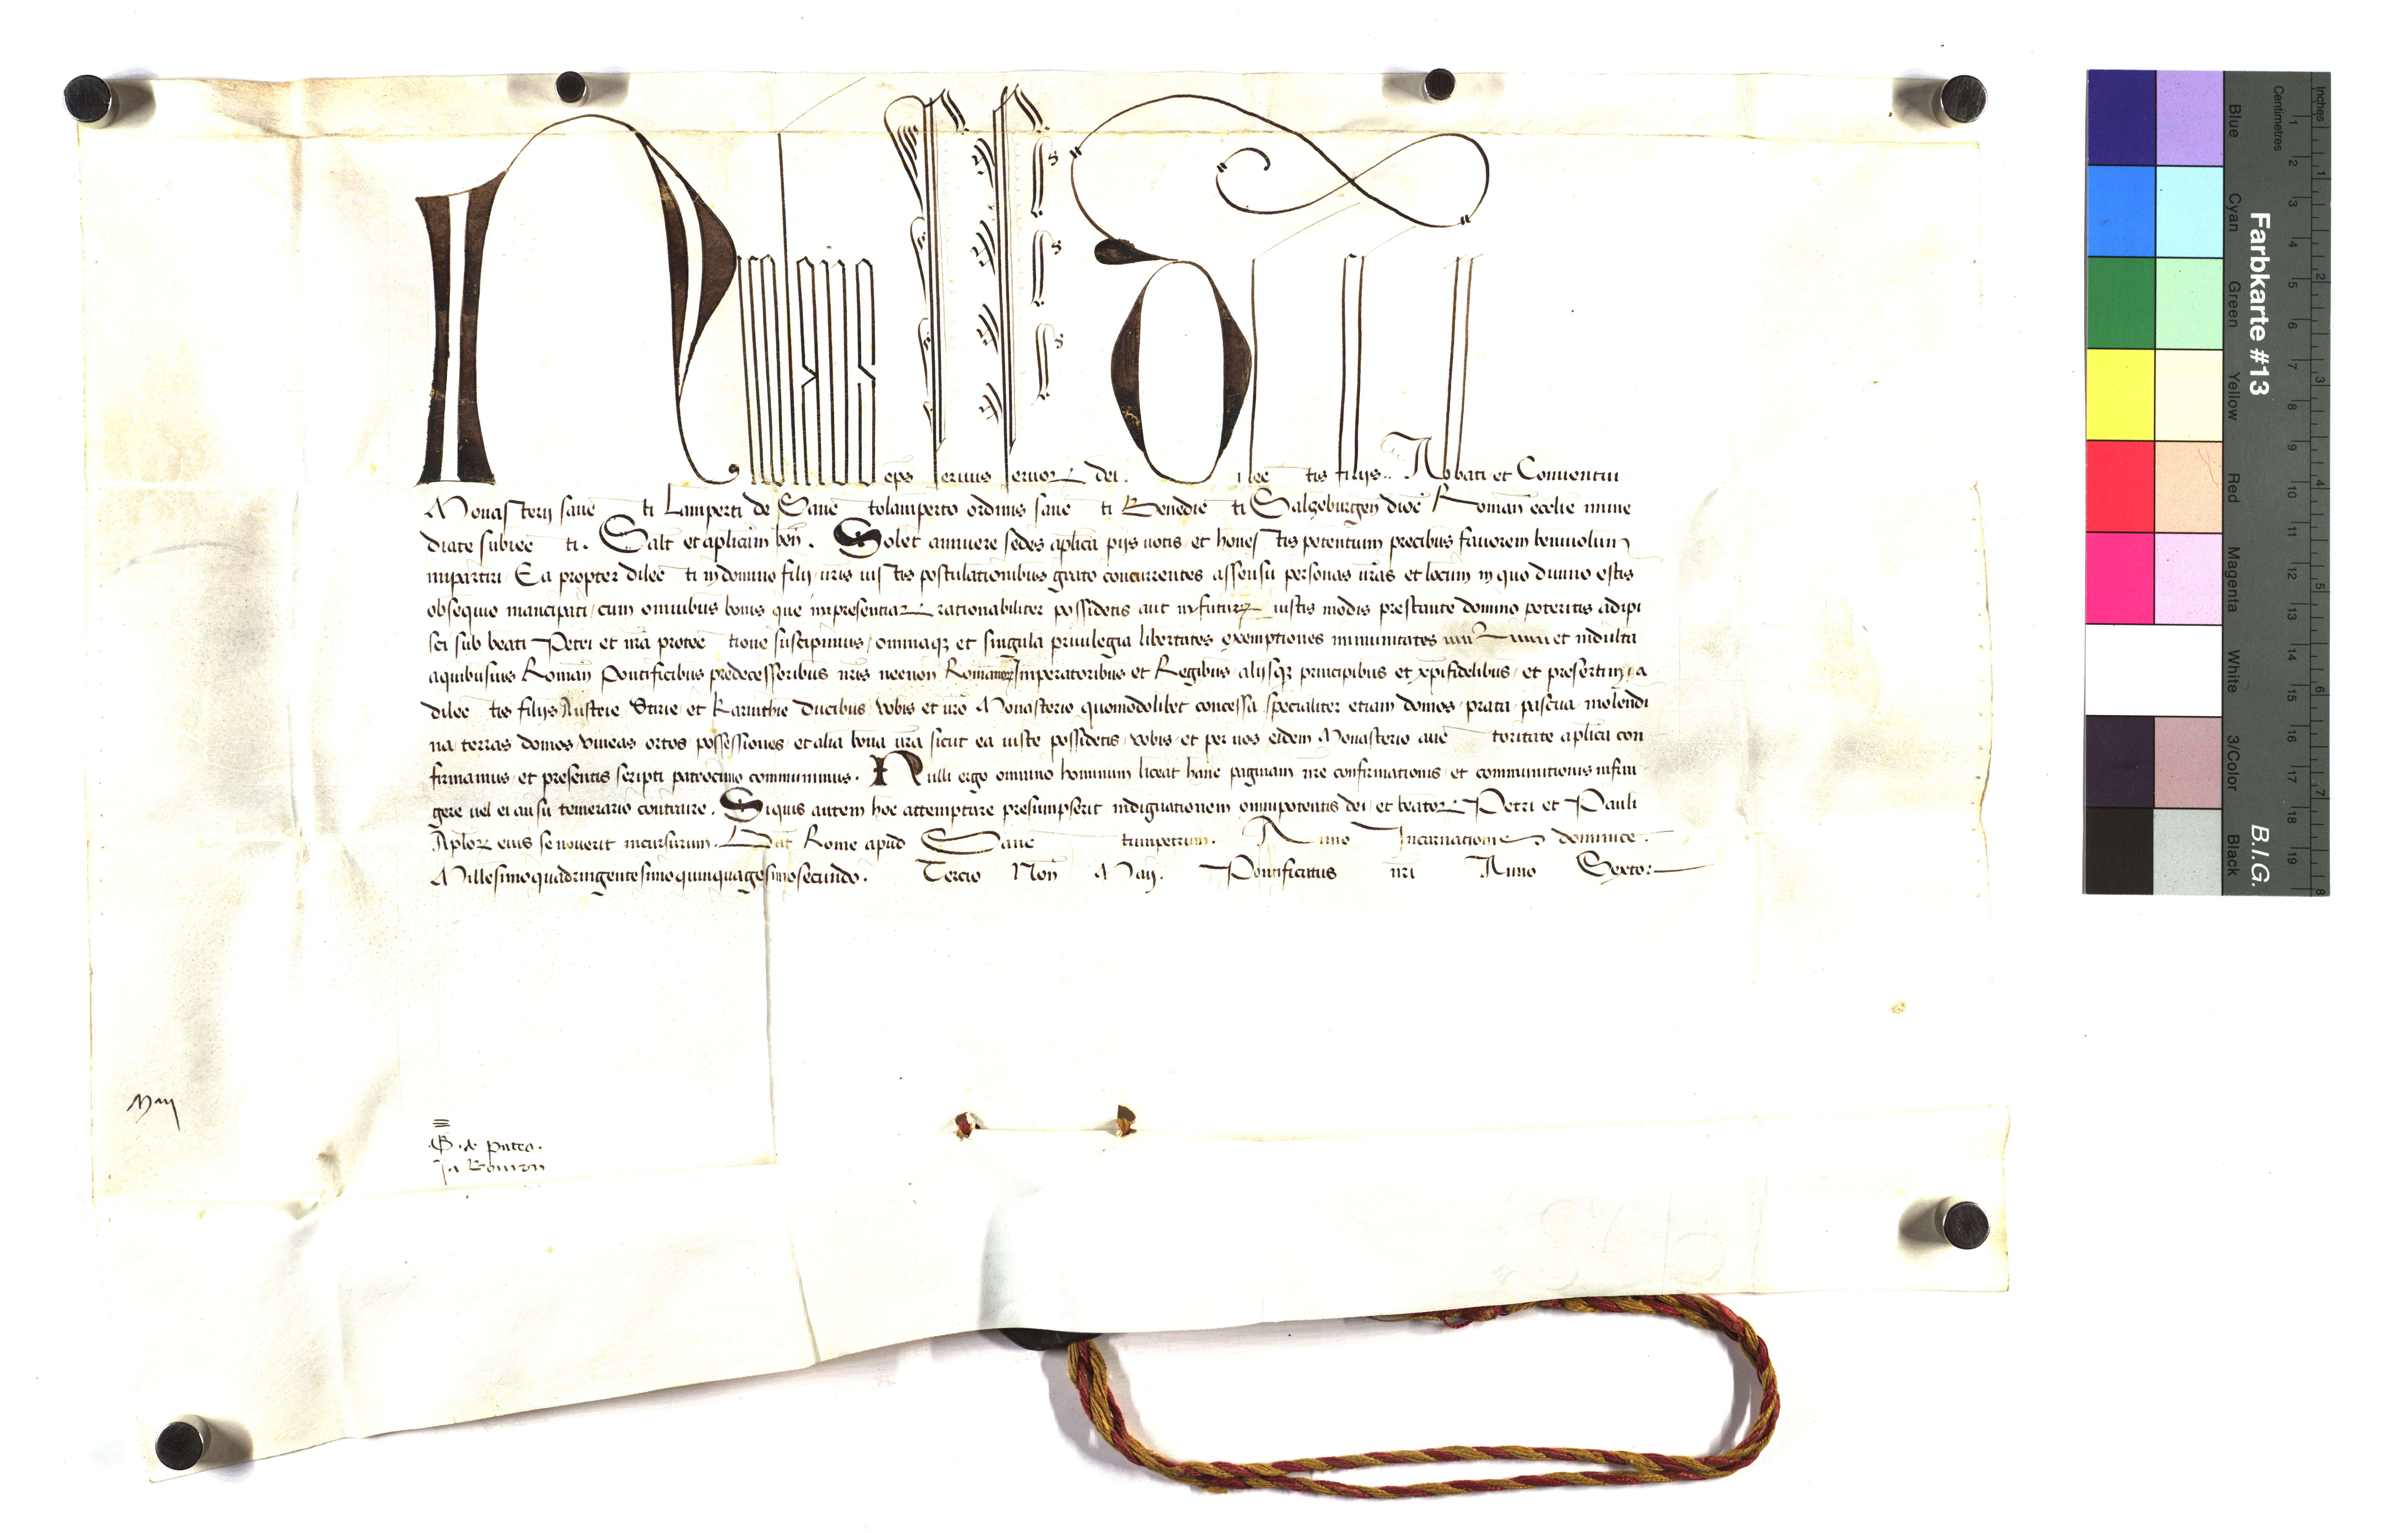 Nicolaus eps seruus seruorꝝ dei. Dilectis filijs .. Abbati et Conuentui
Monasterij sancti Lamperti de Sanctolamperto ordinis sancti Benedicti Salzeburgen dioc̄ Roman̄ ecclie inme
diate subiecti. Salt̄ et aplicam ben̄. Solet annuere sedes aplica pijs uotis et honestis petentium precibus fauorem beniuolum
impartiri. Ea propter dilecti in domino filij uris iustis postulationibus grato concurrentes assensu personas uras et locum in quo diuino estis
obsequio mancipati cum omnibus bonis que inpresentiarꝝ rationabiliter possidetis aut infuturꝝ iustis modis prestante domino poteritis adipi
sci sub beati Petri et nra protectione suscipimus, omniaqꝫ et singula priuilegia libertates exemptiones inmunitates et indulta
aquibusuis Roman̄ Pontificibus predecessoribus nris necnon Romanorꝝ Imperatoribus et Regibus, alijsqꝫ principibus et xpifidelibus, et presertim, a
dilectis filijs Austrie Stirie et Karinthie ducibus, uobis et uro Monasterio quomodolibet concessa, specialiter etiam domos, prata, pascua, molendi
na, terras domos, uineas ortos, possessiones, et alia bona ura sicut ea iuste possidetis, uobis, et per uos eidem Monasterio auctoritate aplica con
firmamus, et presentis scripti patrocinio communimus. Nulli ergo omnino hominum liceat hanc paginam nre confirmationis, et communitionis infrin
gere uel ei ausu temerario contraire. Siquis autem hoc attemptare presumpserit indignationem omnipotentis dei, et beatorꝝ Petri et Pauli
Aplorꝝ eius se nouerit incursurum. Dat̄ Rome apud Sanctumpetrum. Anno Incarnationis dominice.
Millesimoquadringentesimoquinquagesimosecundo. Tercio Non̄ Maij. Pontificatus nri Anno Sexto:
Maij
G. de Puteo.
Ja Bouron
Inches
Centimetres
1 2 3 4 5 6 7 8 9 10 11 12 13 14 15 16 17 18 19
1 2 3 4 5 6 7 8
Blue Cyan Green Yellow Red Magenta White 3/Color Black
Farbkarte #13 B.I.G.